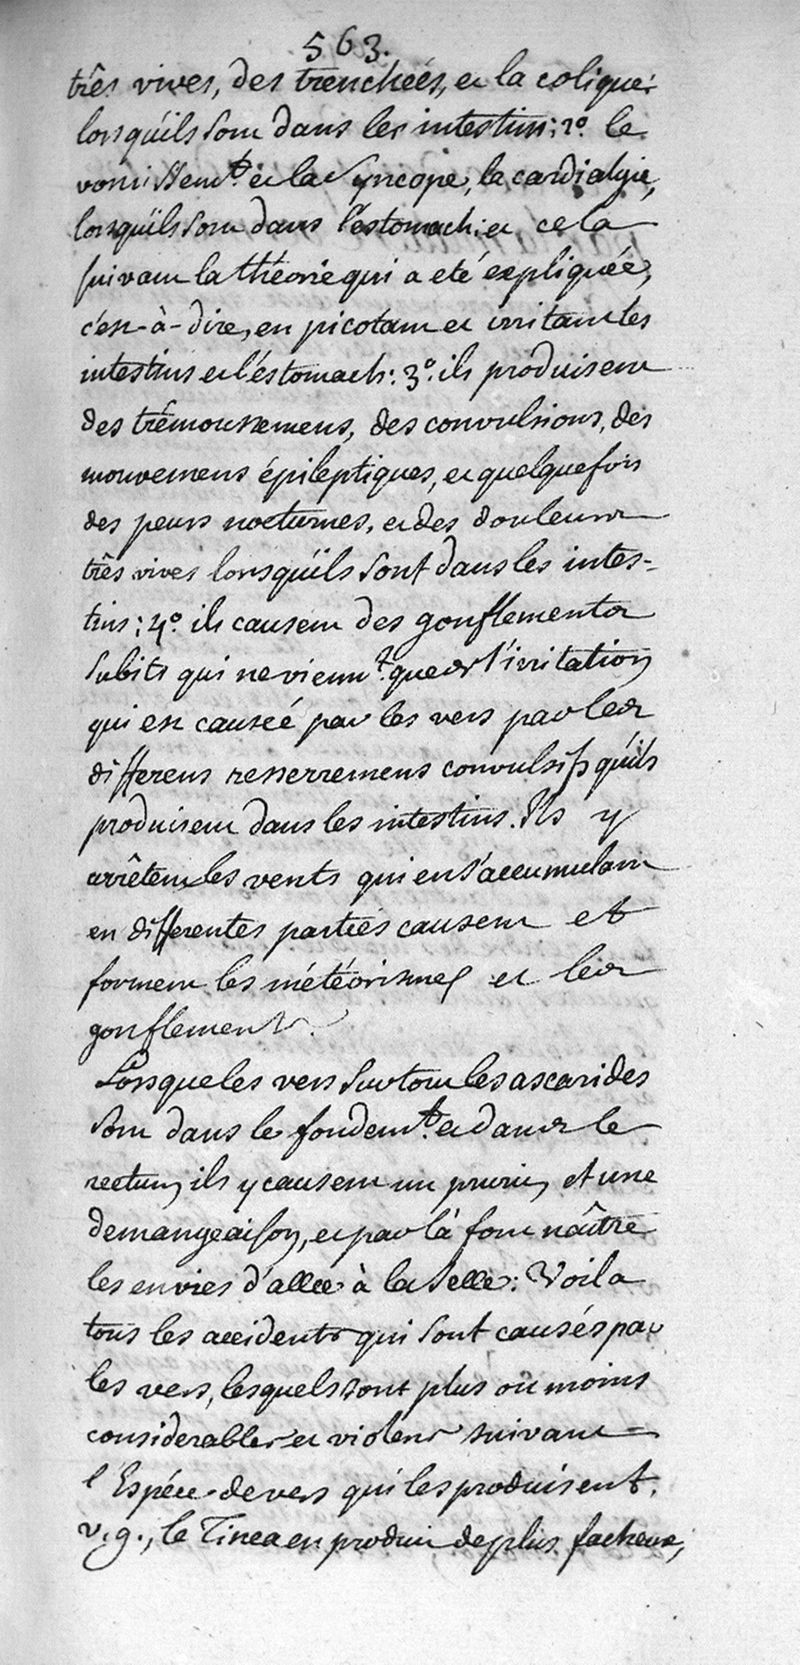 563.
três vives, des trenchées, et la colique;
lorsqu'ils sont dans les intestins; 2º. le
vomissemt. et la Syncope, la cardialgie,
lorsqu'ils sont dans l'estomach; et cela
suivant la théorie qui a eté expliquée,
c'est-à-dire, en picotant et irritant les
intestins et l'éstomach: 3º. ils produisent
des trémoussemens, des convulsions, des
mouvemens épileptiques, et quelquefois
des peurs nocturnes, et des douleurs
três vives lorsqu'ils sont dans les intes-
tins; 4º. ils causent des gonflements
subits qui ne viennt. que de l'irritation
qui est causeé par les vers par les
differens resserremens convulsifs qu'ils
produisent dans les intestins. Ils y
arrêtent les vents qui en s'accumulant
en differentes partiés causent et
forment les météorismes et les
gonflements.
Lorsque les vers surtout les ascarides
sont dans le fondemt. et dans le
rectum, ils y causent un prurit, et une
demangeaison, et par là font naître
les envies d'aller à la selle: Voila
tous les accidents qui sont causés par
les vers, lesquels sont plus ou moins
considerables et violens suivant
l'Espéce de vers qui les produisent.
v. g., le Tinea en produit de plus facheux,